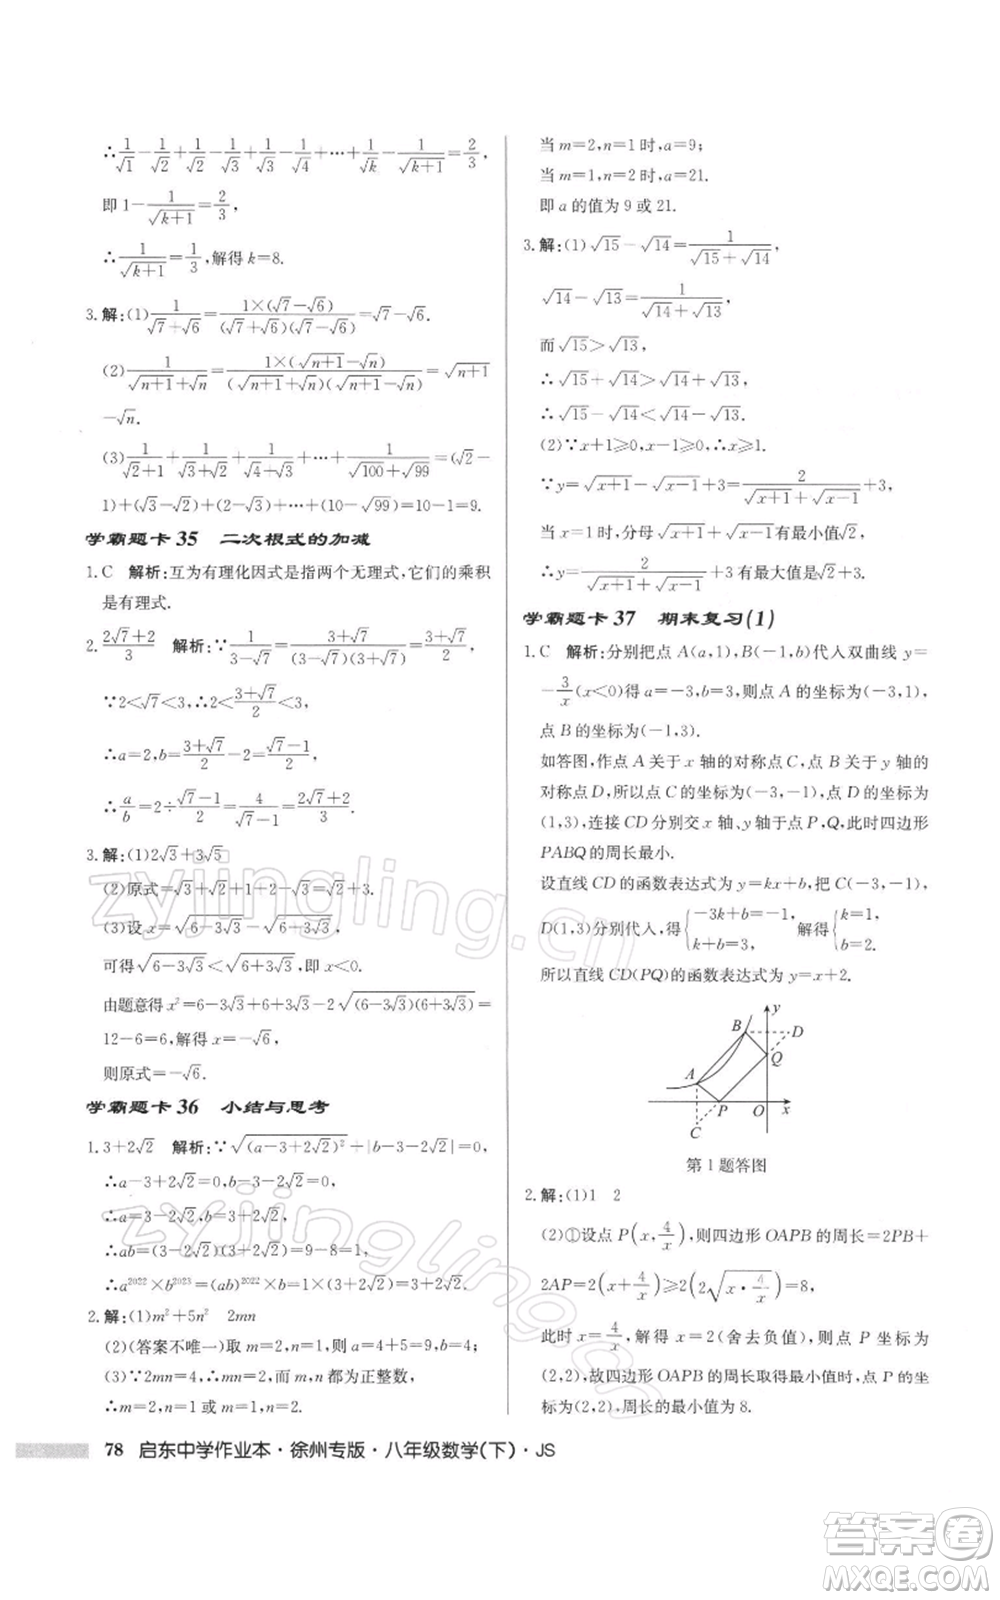 ∴1/√1−1/√2+1/√2−1/√3+1/√3−1/√4+…+1/√k−1/√(k+1)=2/3,
即 1−1/√(k+1)=2/3,
∴1/√(k+1)=1/3,解得 k=8.
3.解:(1)1/(√7+√6)=1×(√7−√6)/((√7+√6)(√7−√6))=√7−√6.
(2)1/(√(n+1)+√n)=1×(√(n+1)−√n)/((√(n+1)+√n)(√(n+1)−√n))=√(n+1)
−√n.
(3)1/(√2+1)+1/(√3+√2)+1/(√4+√3)+…+1/(√100+√99)=(√2−
1)+(√3−√2)+(2−√3)+…+(10−√99)=10−1=9.
学霸题卡 35 二次根式的加减
1.C 解析:互为有理化因式是指两个无理式,它们的乘积
是有理式.
2.(2√7+2)/3 解析:∵1/(3−√7)=(3+√7)/((3−√7)(3+√7))=(3+√7)/2,
∵2<√7<3,∴2<(3+√7)/2<3,
∴a=2,b=(3+√7)/2−2=(√7−1)/2,
∴a/b=2÷(√7−1)/2=4/(√7−1)=(2√7+2)/3.
3.解:(1)2√3+3√5
(2)原式=√3−√2+√2+3=√3+3.
(3)设 x=√(6−3√3)−√(6+3√3),
可得√(6−3√3)<√(6+3√3),即 x<0.
由题意得 x²=6−3√3+6+3√3−2√((6−3√3)(6+3√3))=
12−6=6,解得 x=−√6.
则原式=−√6.
学霸题卡 36 小结与思考
1.3+2√2 解析:∵√((a−3+2√2)²)+|b−3−2√2|=0,
∴a−3+2√2=0,b−3−2√2=0,
∴a=3−2√2,b=3+2√2,
∴ab=(3−2√2)(3+2√2)=9−8=1,
∴a²⁰²²×b²⁰²³=(ab)²⁰²²×b=1×(3+2√2)=3+2√2.
2.解:(1)m²+5n² 2mn
(2)(答案不唯一)取 m=2,n=1,则 a=4+5=9,b=4.
(3)∵2mn=4,∴mn=2,而 m,n 都为正整数,
∴m=2,n=1 或 m=1,n=2.
当 m=2,n=1 时,a=9;
当 m=1,n=2 时,a=21.
即 a 的值为 9 或 21.
3.解:(1)√15−√14=1/(√15+√14),
√14−√13=1/(√14+√13),
而√15>√13,
∴√15+√14>√14+√13,
∴√15−√14<√14−√13.
(2)∵x+1≥0,x−1≥0,∴x≥1.
∵y=√(x+1)−√(x−1)+3=2/(√(x+1)+√(x−1))+3,
当 x=1 时,分母√(x+1)+√(x−1)有最小值√2,
∴y=2/(√(x+1)+√(x−1))+3 有最大值是√2+3.
学霸题卡 37 期末复习(1)
1.C 解析:分别把点 A(a,1),B(−1,b)代入双曲线 y=
−3/x(x<0)得 a=−3,b=3,则点 A 的坐标为(−3,1),
点 B 的坐标为(−1,3).
如答图,作点 A 关于 x 轴的对称点 C,点 B 关于 y 轴
的对称点 D,所以点 C 的坐标为(−3,−1),点 D 的坐标为
(1,3),连接 CD 分别交 x 轴、y 轴于点 P,Q,此时四边形
PABQ 的周长最小.
设直线 CD 的函数表达式为 y=kx+b,把 C(−3,−1),
D(1,3)分别代入,得{−3k+b=−1, k+b=3, 解得{k=1, b=2.
所以直线 CD(PQ)的函数表达式为 y=x+2.
y
B
D
Q
A
P
O
x
C
第 1 题答图
2.解:(1)1 2
(2)①设点 P(x,4/x),则四边形 OAPB 的周长=2PB+
2AP=2(x+4/x)≥2(2√(x·4/x))=8,
此时 x=4/x,解得 x=2(舍去负值),则点 P 坐标为
(2,2),故四边形 OAPB 的周长取得最小值时,点 P 的坐
标为(2,2),周长的最小值为 8.
78 启东中学作业本·徐州专版·八年级数学(下)·JS
zyjingling.cn
zyjingling.cn
答案圈
MXQE.COM